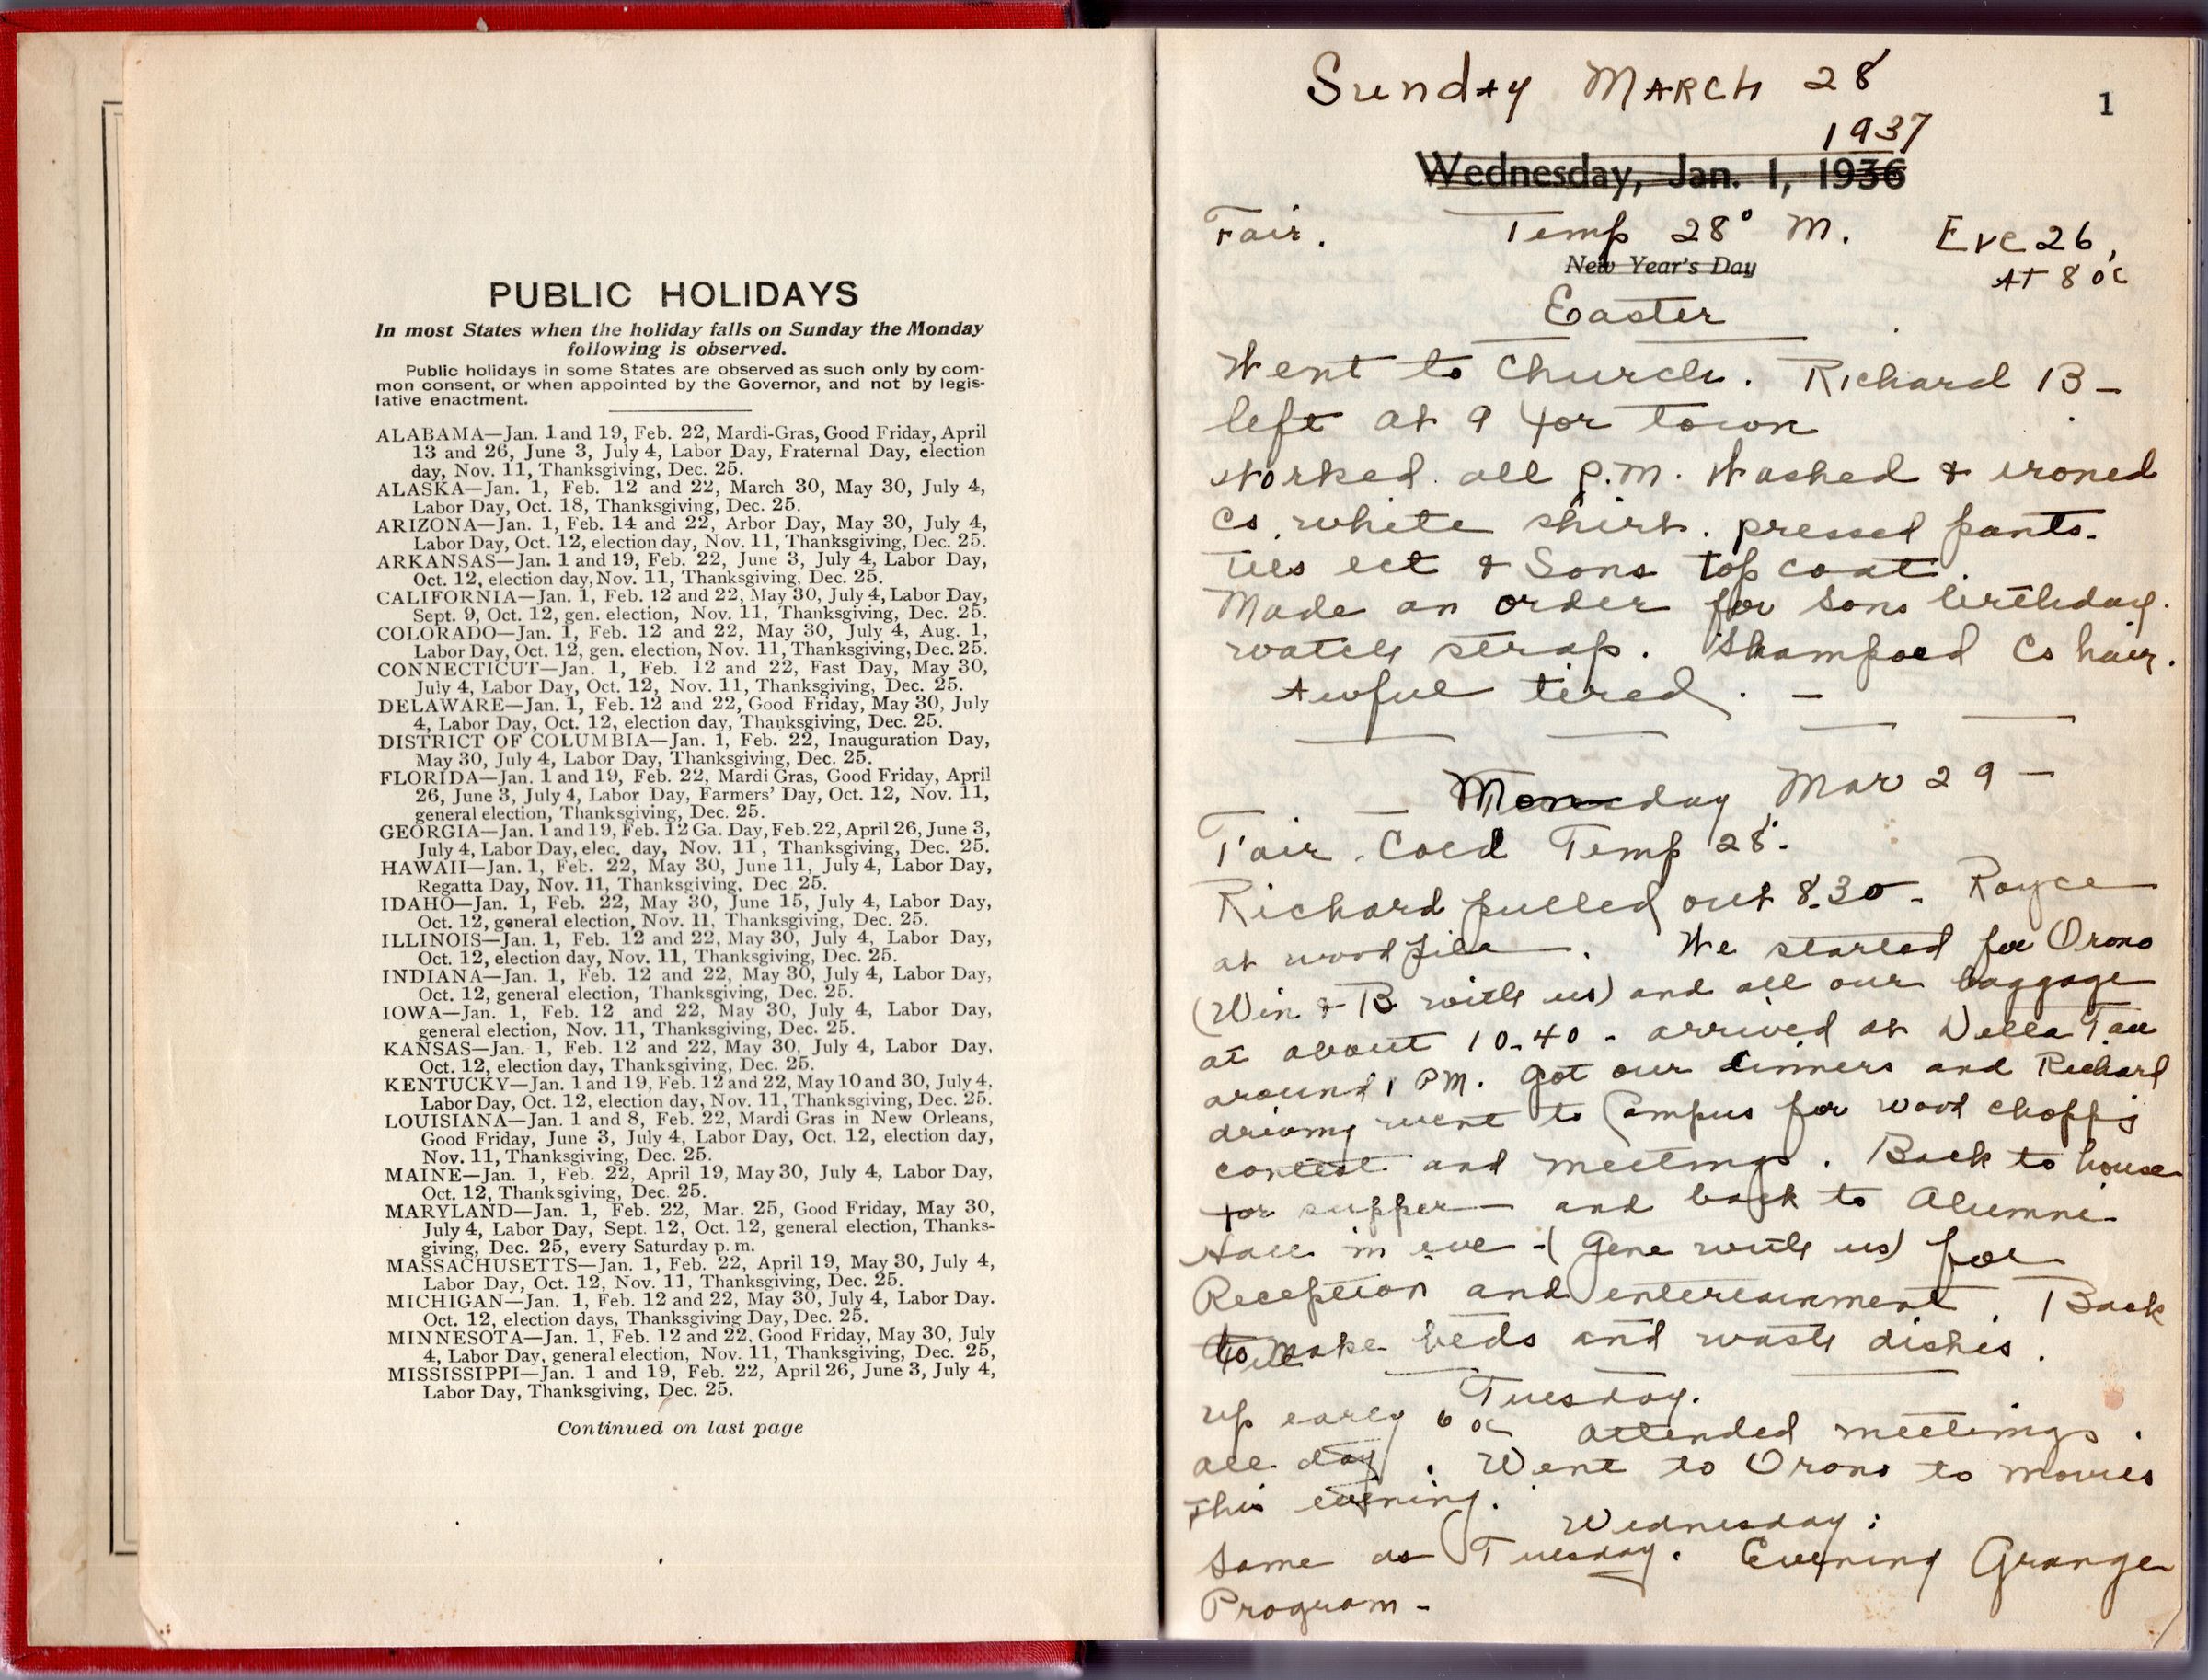 PUBLIC HOLIDAYS
In most States when the holiday falls on Sunday the Monday
following is observed.
Public holidays in some States are observed as such only by com-
mon consent, or when appointed by the Governor, and not by legis-
lative enactment.
ALABAMA—Jan. 1 and 19, Feb. 22, Mardi-Gras, Good Friday, April
13 and 26, June 3, July 4, Labor Day, Fraternal Day, election
day, Nov. 11, Thanksgiving, Dec. 25.
ALASKA—Jan. 1, Feb. 12 and 22, March 30, May 30, July 4,
Labor Day, Oct. 18, Thanksgiving, Dec. 25.
ARIZONA—Jan. 1, Feb. 14 and 22, Arbor Day, May 30, July 4,
Labor Day, Oct. 12, election day, Nov. 11, Thanksgiving, Dec. 25.
ARKANSAS—Jan. 1 and 19, Feb. 22, June 3, July 4, Labor Day,
Oct. 12, election day, Nov. 11, Thanksgiving, Dec. 25.
CALIFORNIA—Jan. 1, Feb. 12 and 22, May 30, July 4, Labor Day,
Sept. 9, Oct. 12, gen. election, Nov. 11, Thanksgiving, Dec. 25.
COLORADO—Jan. 1, Feb. 12 and 22, May 30, July 4, Aug. 1,
Labor Day, Oct. 12, gen. election, Nov. 11, Thanksgiving, Dec. 25.
CONNECTICUT—Jan. 1, Feb. 12 and 22, Fast Day, May 30,
July 4, Labor Day, Oct. 12, Nov. 11, Thanksgiving, Dec. 25.
DELAWARE—Jan. 1, Feb. 12 and 22, Good Friday, May 30, July
4, Labor Day, Oct. 12, election day, Thanksgiving, Dec. 25.
DISTRICT OF COLUMBIA—Jan. 1, Feb. 22, Inauguration Day,
May 30, July 4, Labor Day, Thanksgiving, Dec. 25.
FLORIDA—Jan. 1 and 19, Feb. 22, Mardi Gras, Good Friday, April
26, June 3, July 4, Labor Day, Farmers' Day, Oct. 12, Nov. 11,
general election, Thanksgiving, Dec. 25.
GEORGIA—Jan. 1 and 19, Feb. 12 Ga. Day, Feb. 22, April 26, June 3,
July 4, Labor Day, elec. day, Nov. 11, Thanksgiving, Dec. 25.
HAWAII—Jan. 1, Feb. 22, May 30, June 11, July 4, Labor Day,
Regatta Day, Nov. 11, Thanksgiving, Dec 25.
IDAHO—Jan. 1, Feb. 22, May 30, June 15, July 4, Labor Day,
Oct. 12, general election, Nov. 11, Thanksgiving, Dec. 25.
ILLINOIS—Jan. 1, Feb. 12 and 22, May 30, July 4, Labor Day,
Oct. 12, election day, Nov. 11, Thanksgiving, Dec. 25.
INDIANA—Jan. 1, Feb. 12 and 22, May 30, July 4, Labor Day,
Oct. 12, general election, Thanksgiving, Dec. 25.
IOWA—Jan. 1, Feb. 12 and 22, May 30, July 4, Labor Day,
general election, Nov. 11, Thanksgiving, Dec. 25.
KANSAS—Jan. 1, Feb. 12 and 22, May 30, July 4, Labor Day,
Oct. 12, election day, Thanksgiving, Dec. 25.
KENTUCKY—Jan. 1 and 19, Feb. 12 and 22, May 10 and 30, July 4,
Labor Day, Oct. 12, election day, Nov. 11, Thanksgiving, Dec. 25.
LOUISIANA—Jan. 1 and 8, Feb. 22, Mardi Gras in New Orleans,
Good Friday, June 3, July 4, Labor Day, Oct. 12, election day,
Nov. 11, Thanksgiving, Dec. 25.
MAINE—Jan. 1, Feb. 22, April 19, May 30, July 4, Labor Day,
Oct. 12, Thanksgiving, Dec. 25.
MARYLAND—Jan. 1, Feb. 22, Mar. 25, Good Friday, May 30,
July 4, Labor Day, Sept. 12, Oct. 12, general election, Thanks-
giving, Dec. 25, every Saturday p. m.
MASSACHUSETTS—Jan. 1, Feb. 22, April 19, May 30, July 4,
Labor Day, Oct. 12, Nov. 11, Thanksgiving, Dec. 25.
MICHIGAN—Jan. 1, Feb. 12 and 22, May 30, July 4, Labor Day.
Oct. 12, election days, Thanksgiving Day, Dec. 25.
MINNESOTA—Jan. 1, Feb. 12 and 22, Good Friday, May 30, July
4, Labor Day, general election, Nov. 11, Thanksgiving, Dec. 25,
MISSISSIPPI—Jan. 1 and 19, Feb. 22, April 26, June 3, July 4,
Labor Day, Thanksgiving, Dec. 25.
Continued on last page
Sunday MARCH 28
1
1937
Wednesday, Jan. 1, 1936
Fair. Temp 28° M. Eve 26,
New Year's Day
AT 8 oc
Easter
Went to Church. Richard B-
left at 9 for town
Worked all P.M. Washed & ironed
Cs. white shirt. pressed pants.
Ties ect & Sons top coat.
Made an order for Sons birthday.
watch strap. Shampoed Cs hair.
Awful tired. -
Monday Mar 29 -
Fair. Cold Temp 28°.
Richard pulled out 8.30 - Royce
at wood pile. We started for Orono
(Win & B with us) and all our baggage
at about 10-40 - arrived at Delta Tau
around 1 PM. Got our dinners and Richard
driving went to Campus for wood chopp'g
contest and meetings. Back to house
for supper and back to Alumni
Hall in eve - (Gene with us) for
Reception and entertainment. Back
to make beds and wash dishis.
Tuesday.
Up early 6 oc attended meetings.
all day. Went to Orono to movies
This evening.
Wednesday:
Same as Tuesday. Evening Grange
Program -